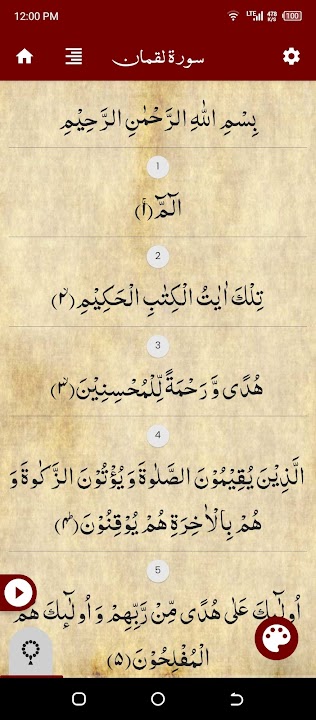 12:00 PM LTE 478 K/s 100
سورة لقمان
بِسْمِ اللّٰهِ الرَّحْمٰنِ الرَّحِيْمِ
1
الٓمّٓ ﴿۱﴾
2
تِلْكَ اٰيٰتُ الْكِتٰبِ الْحَكِيْمِ ﴿۲﴾
3
هُدًى وَّ رَحْمَةً لِّلْمُحْسِنِيْنَ ﴿۳﴾
4
الَّذِيْنَ يُقِيْمُوْنَ الصَّلٰوةَ وَ يُؤْتُوْنَ الزَّكٰوةَ وَ
هُمْ بِالْاٰخِرَةِ هُمْ يُوْقِنُوْنَ ﴿۴﴾
5
اُولٰٓىِٕكَ عَلٰى هُدًى مِّنْ رَّبِّهِمْ وَ اُولٰٓىِٕكَ هُمُ
الْمُفْلِحُوْنَ ﴿۵﴾